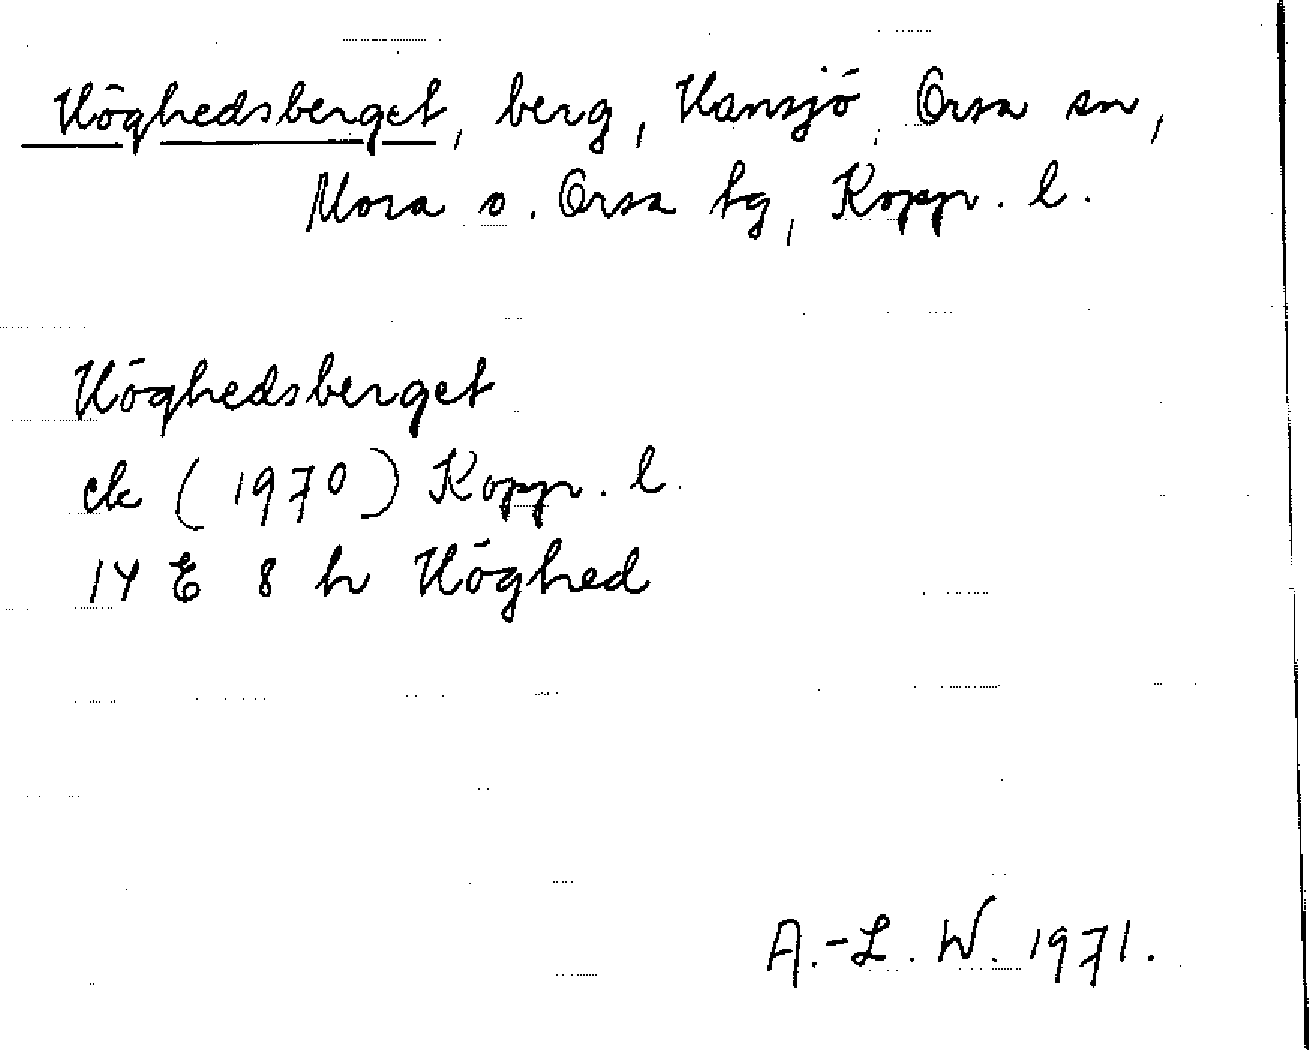 Höghedsberget, berg, Hansjö, Orsa sn,
Mora o. Orsa tg, Kopp. l.
Höghedsberget
ek (1970) Kopp. l.
14 E 8 h Höghed
A.-L. W. 1971.